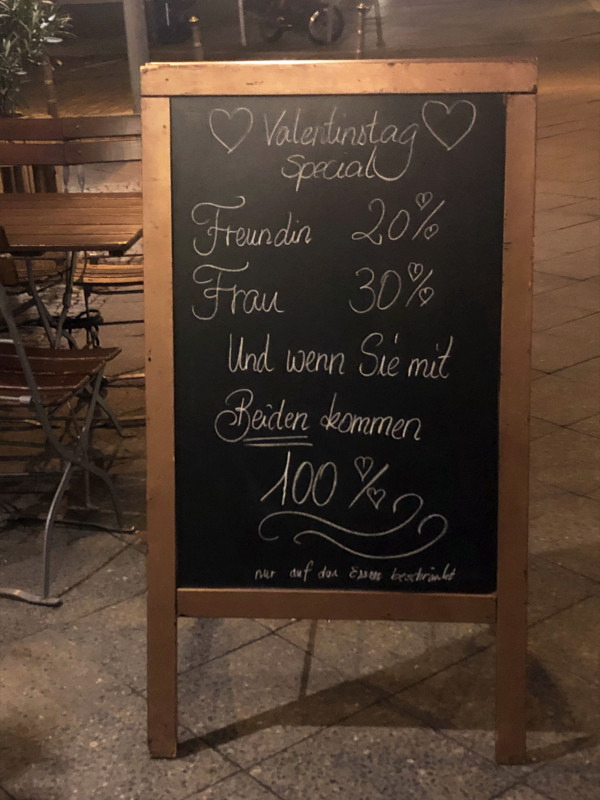 Valentinstag
Special
Freundin 20%
Frau 30%
Und wenn Sie mit
Beiden kommen
100%
nur auf das Essen beschränkt